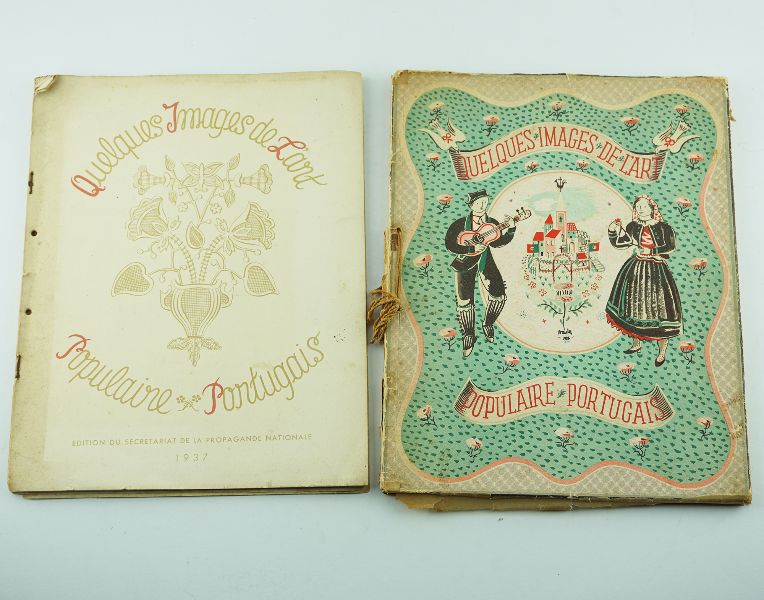 Quelques Images de L'art
Populaire Portugais
EDITION DU SECRETARIAT DE LA PROPAGANDE NATIONALE
1937
QUELQUES-IMAGES-DE-L'ART
POPULAIRE-PORTUGAIS